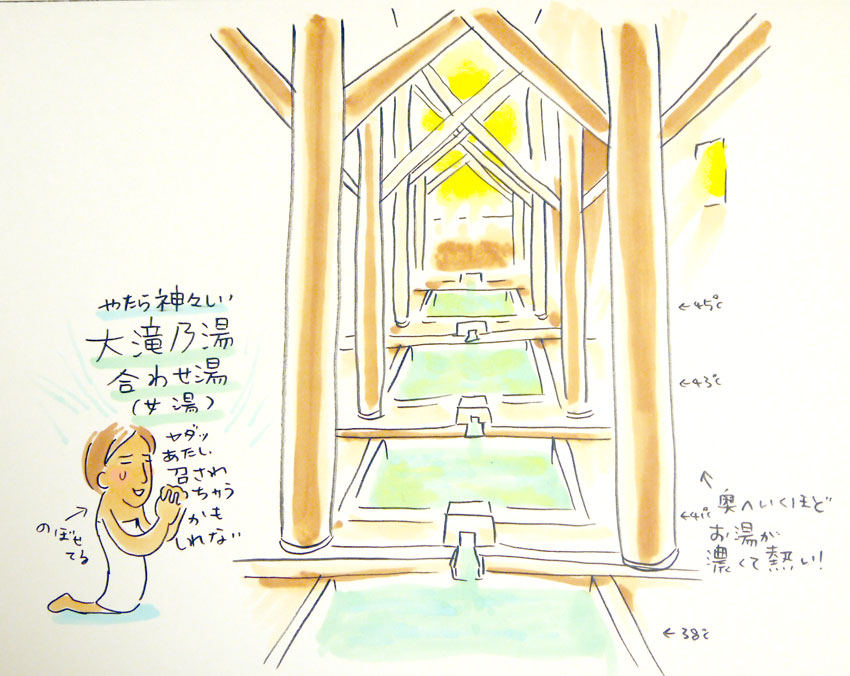 やたら神々しい
大滝乃湯
合わせ湯
(女湯)
ヤダッ
あたし
召され
ちゃう
かも
しれない
のぼせ
てる
←45℃
←43℃
←41℃
←38℃
奥へいくほど
お湯が
濃くて熱い!